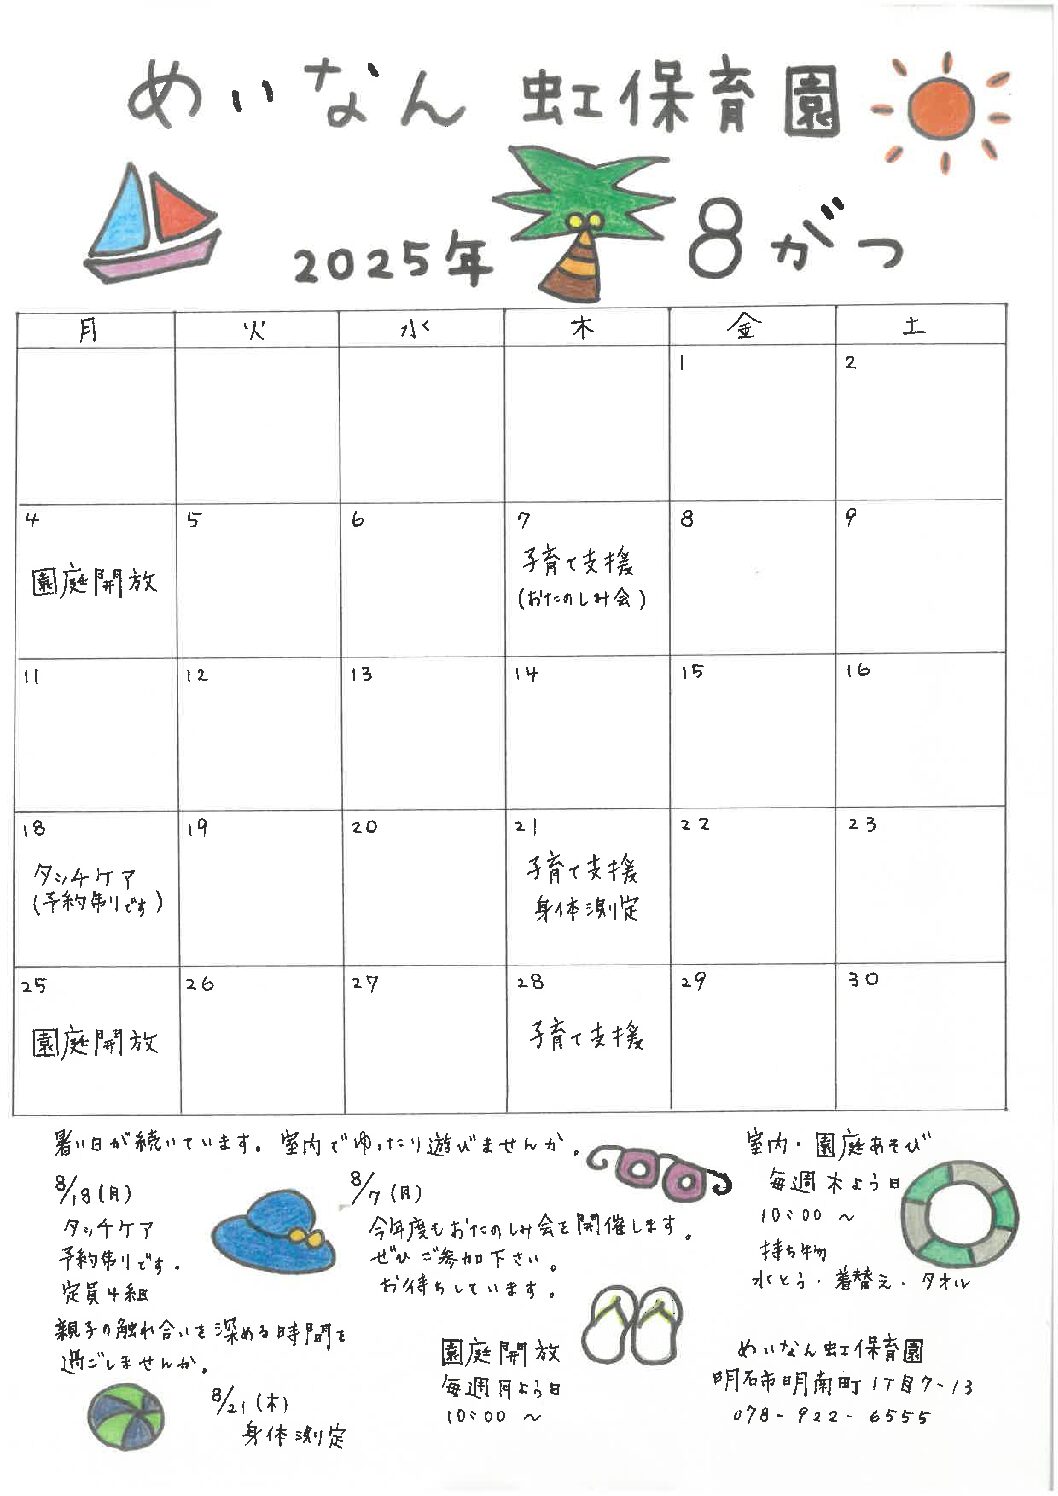 めいなん 虹保育園
2025年 8がつ
月 火 水 木 金 土
1 2
4 5 6 7 8 9
園庭開放
子育て支援
(おたのしみ会)
11 12 13 14 15 16
18 19 20 21 22 23
タッチケア
(予約制です)
子育て支援
身体測定
25 26 27 28 29 30
園庭開放
子育て支援
暑い日が続いています。室内でゆったり遊びませんか。
8/18(月)
タッチケア
予約制です.
定員4組
親子の触れ合いを深める時間を
過ごしませんか。
8/7(月)
今年度もおたのしみ会を開催します。
ぜひご参加下さい。
お待ちしています。
8/21(木)
身体測定
園庭開放
毎週月よう日
10:00 ~
室内・園庭あそび
毎週木よう日
10:00 ~
持ち物
水とう・着替え・タオル
めいなん虹保育園
明石市明南町1丁目7-13
078-922-6555